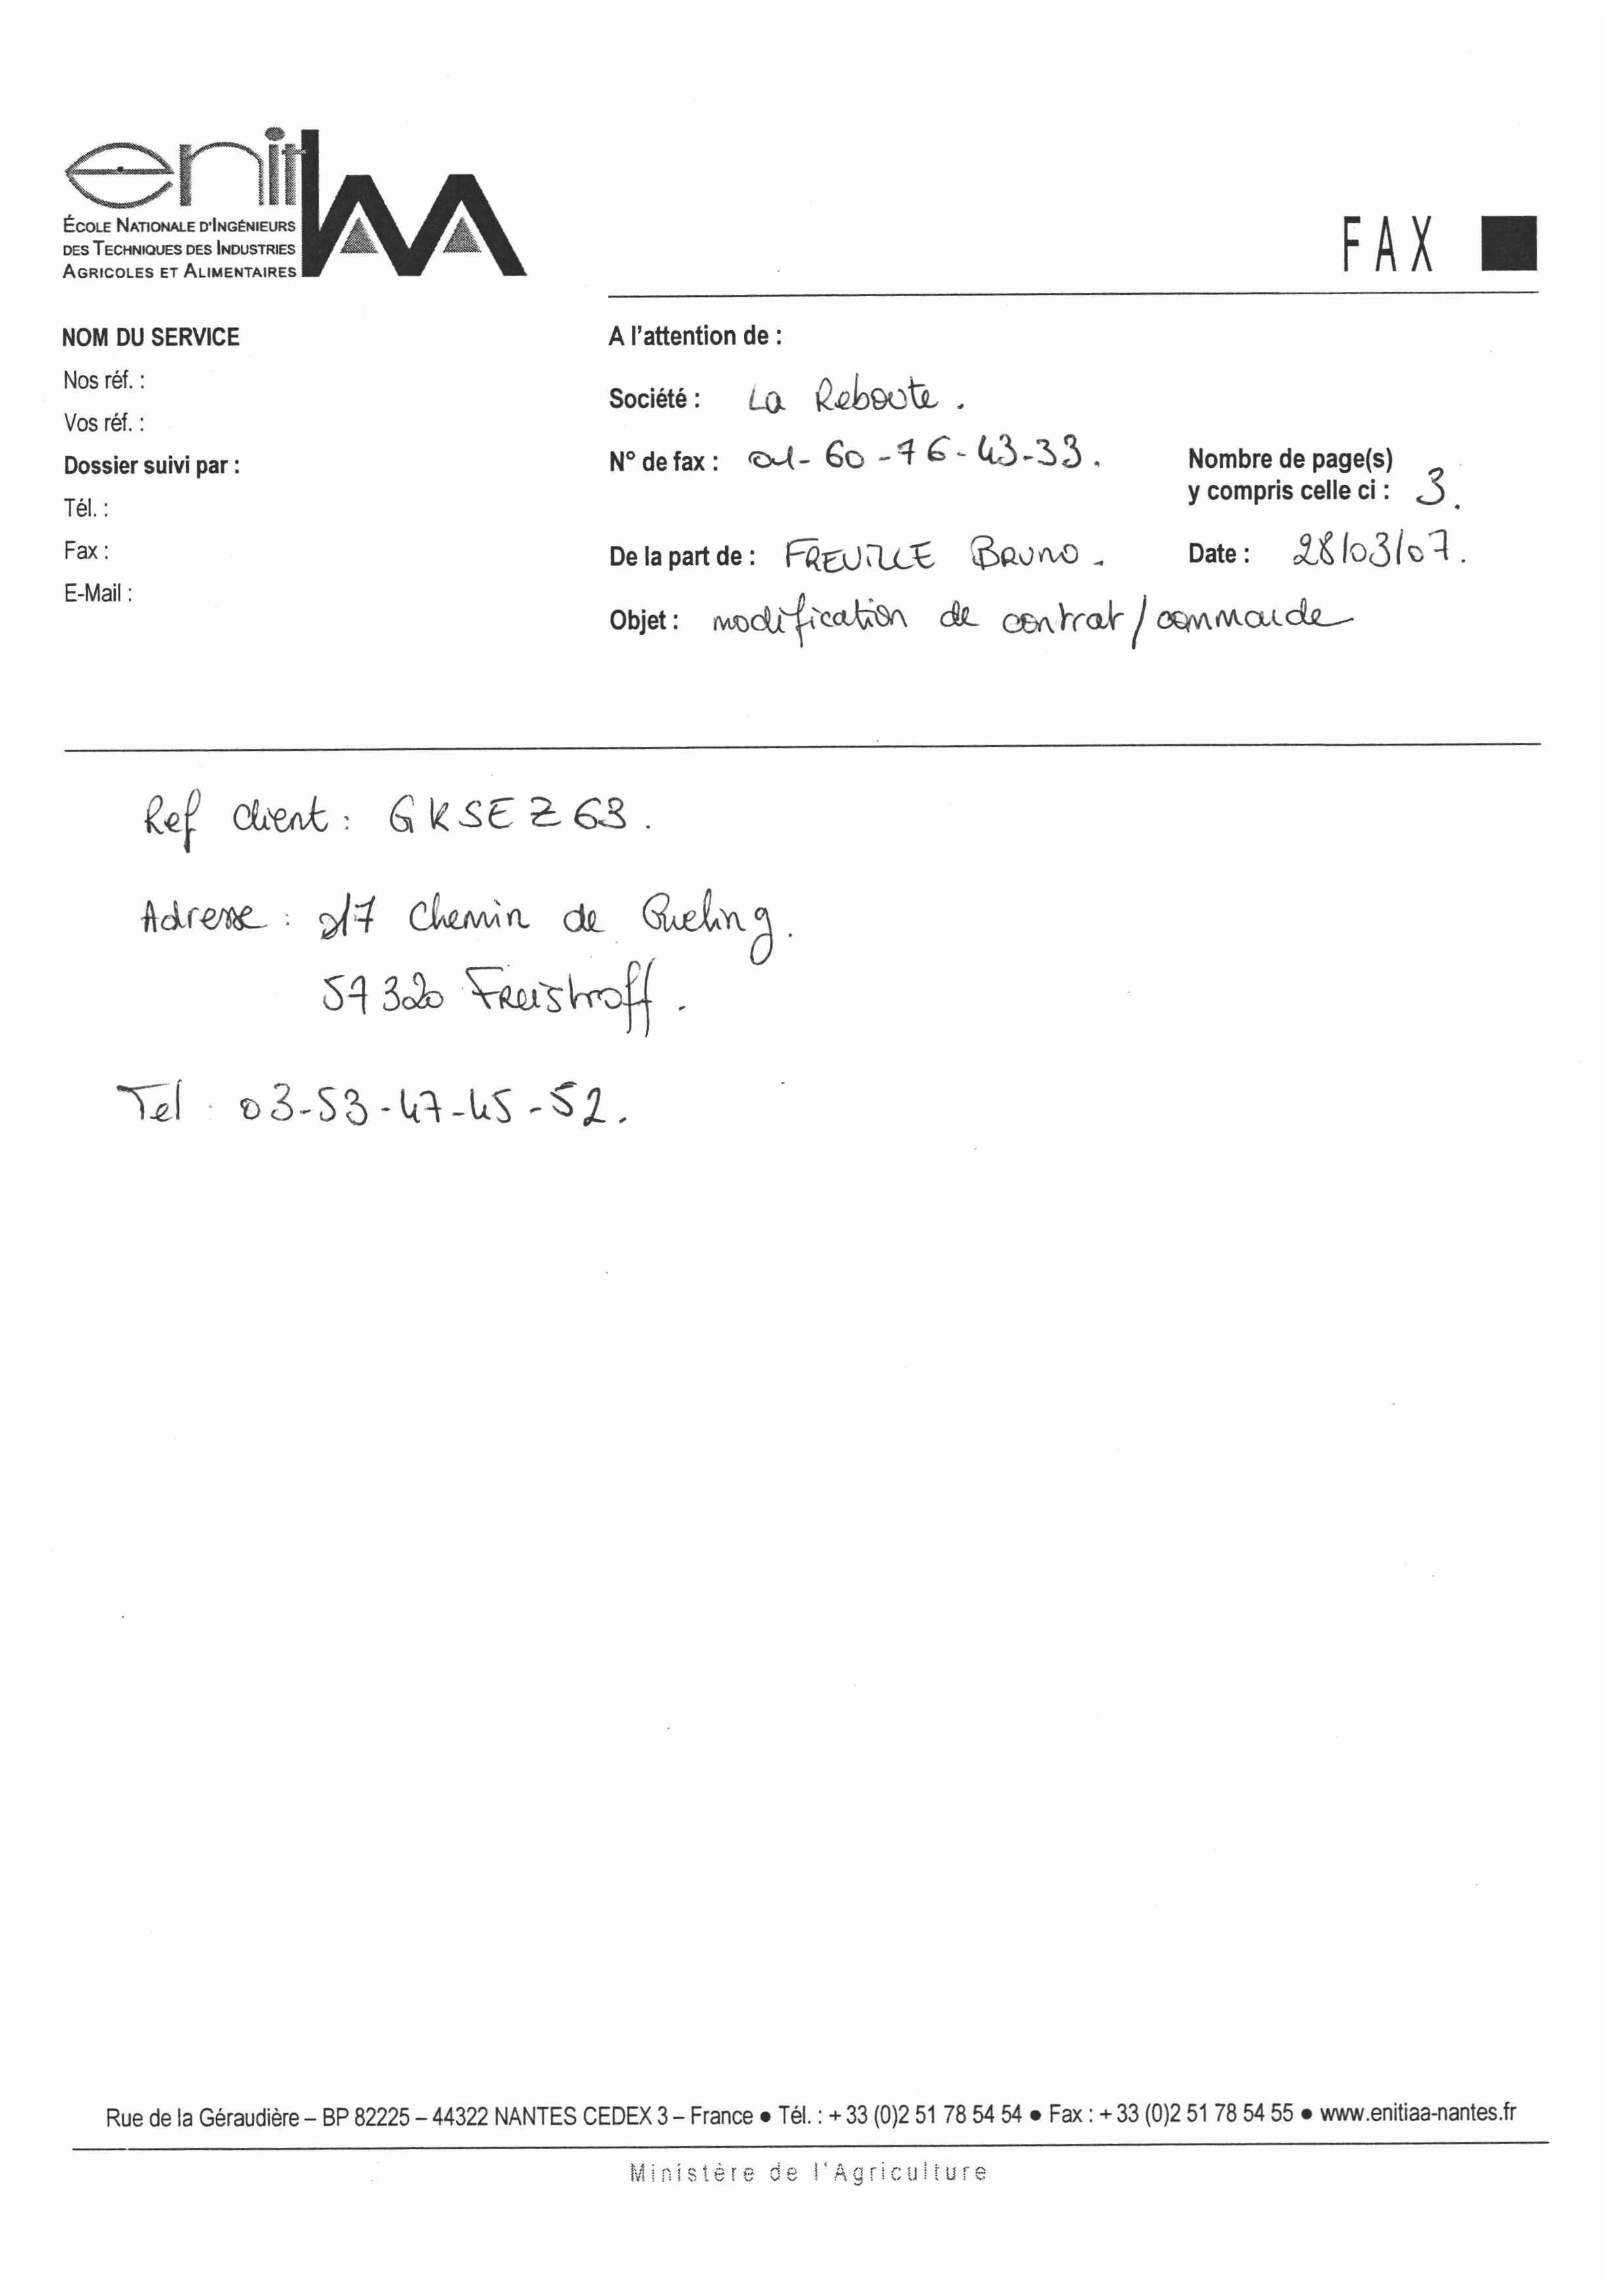 enitIAA
ÉCOLE NATIONALE D'INGÉNIEURS
DES TECHNIQUES DES INDUSTRIES
AGRICOLES ET ALIMENTAIRES
FAX
NOM DU SERVICE
Nos réf. :
Vos réf. :
Dossier suivi par :
Tél. :
Fax :
E-Mail :
A l'attention de :
Société : La Reboute.
N° de fax : 01-60-76-43-33.
Nombre de page(s)
y compris celle ci : 3.
De la part de : FREVILLE Bruno.
Date : 28/03/07.
Objet : modification de contrat/commande
Ref client : GKSEZ63.
Adresse : 217 Chemin de Gueling.
57320 Freistroff.
Tel : 03-53-47-45-52.
Rue de la Géraudière – BP 82225 – 44322 NANTES CEDEX 3 – France ● Tél. : + 33 (0)2 51 78 54 54 ● Fax : + 33 (0)2 51 78 54 55 ● www.enitiaa-nantes.fr
Ministère de l'Agriculture